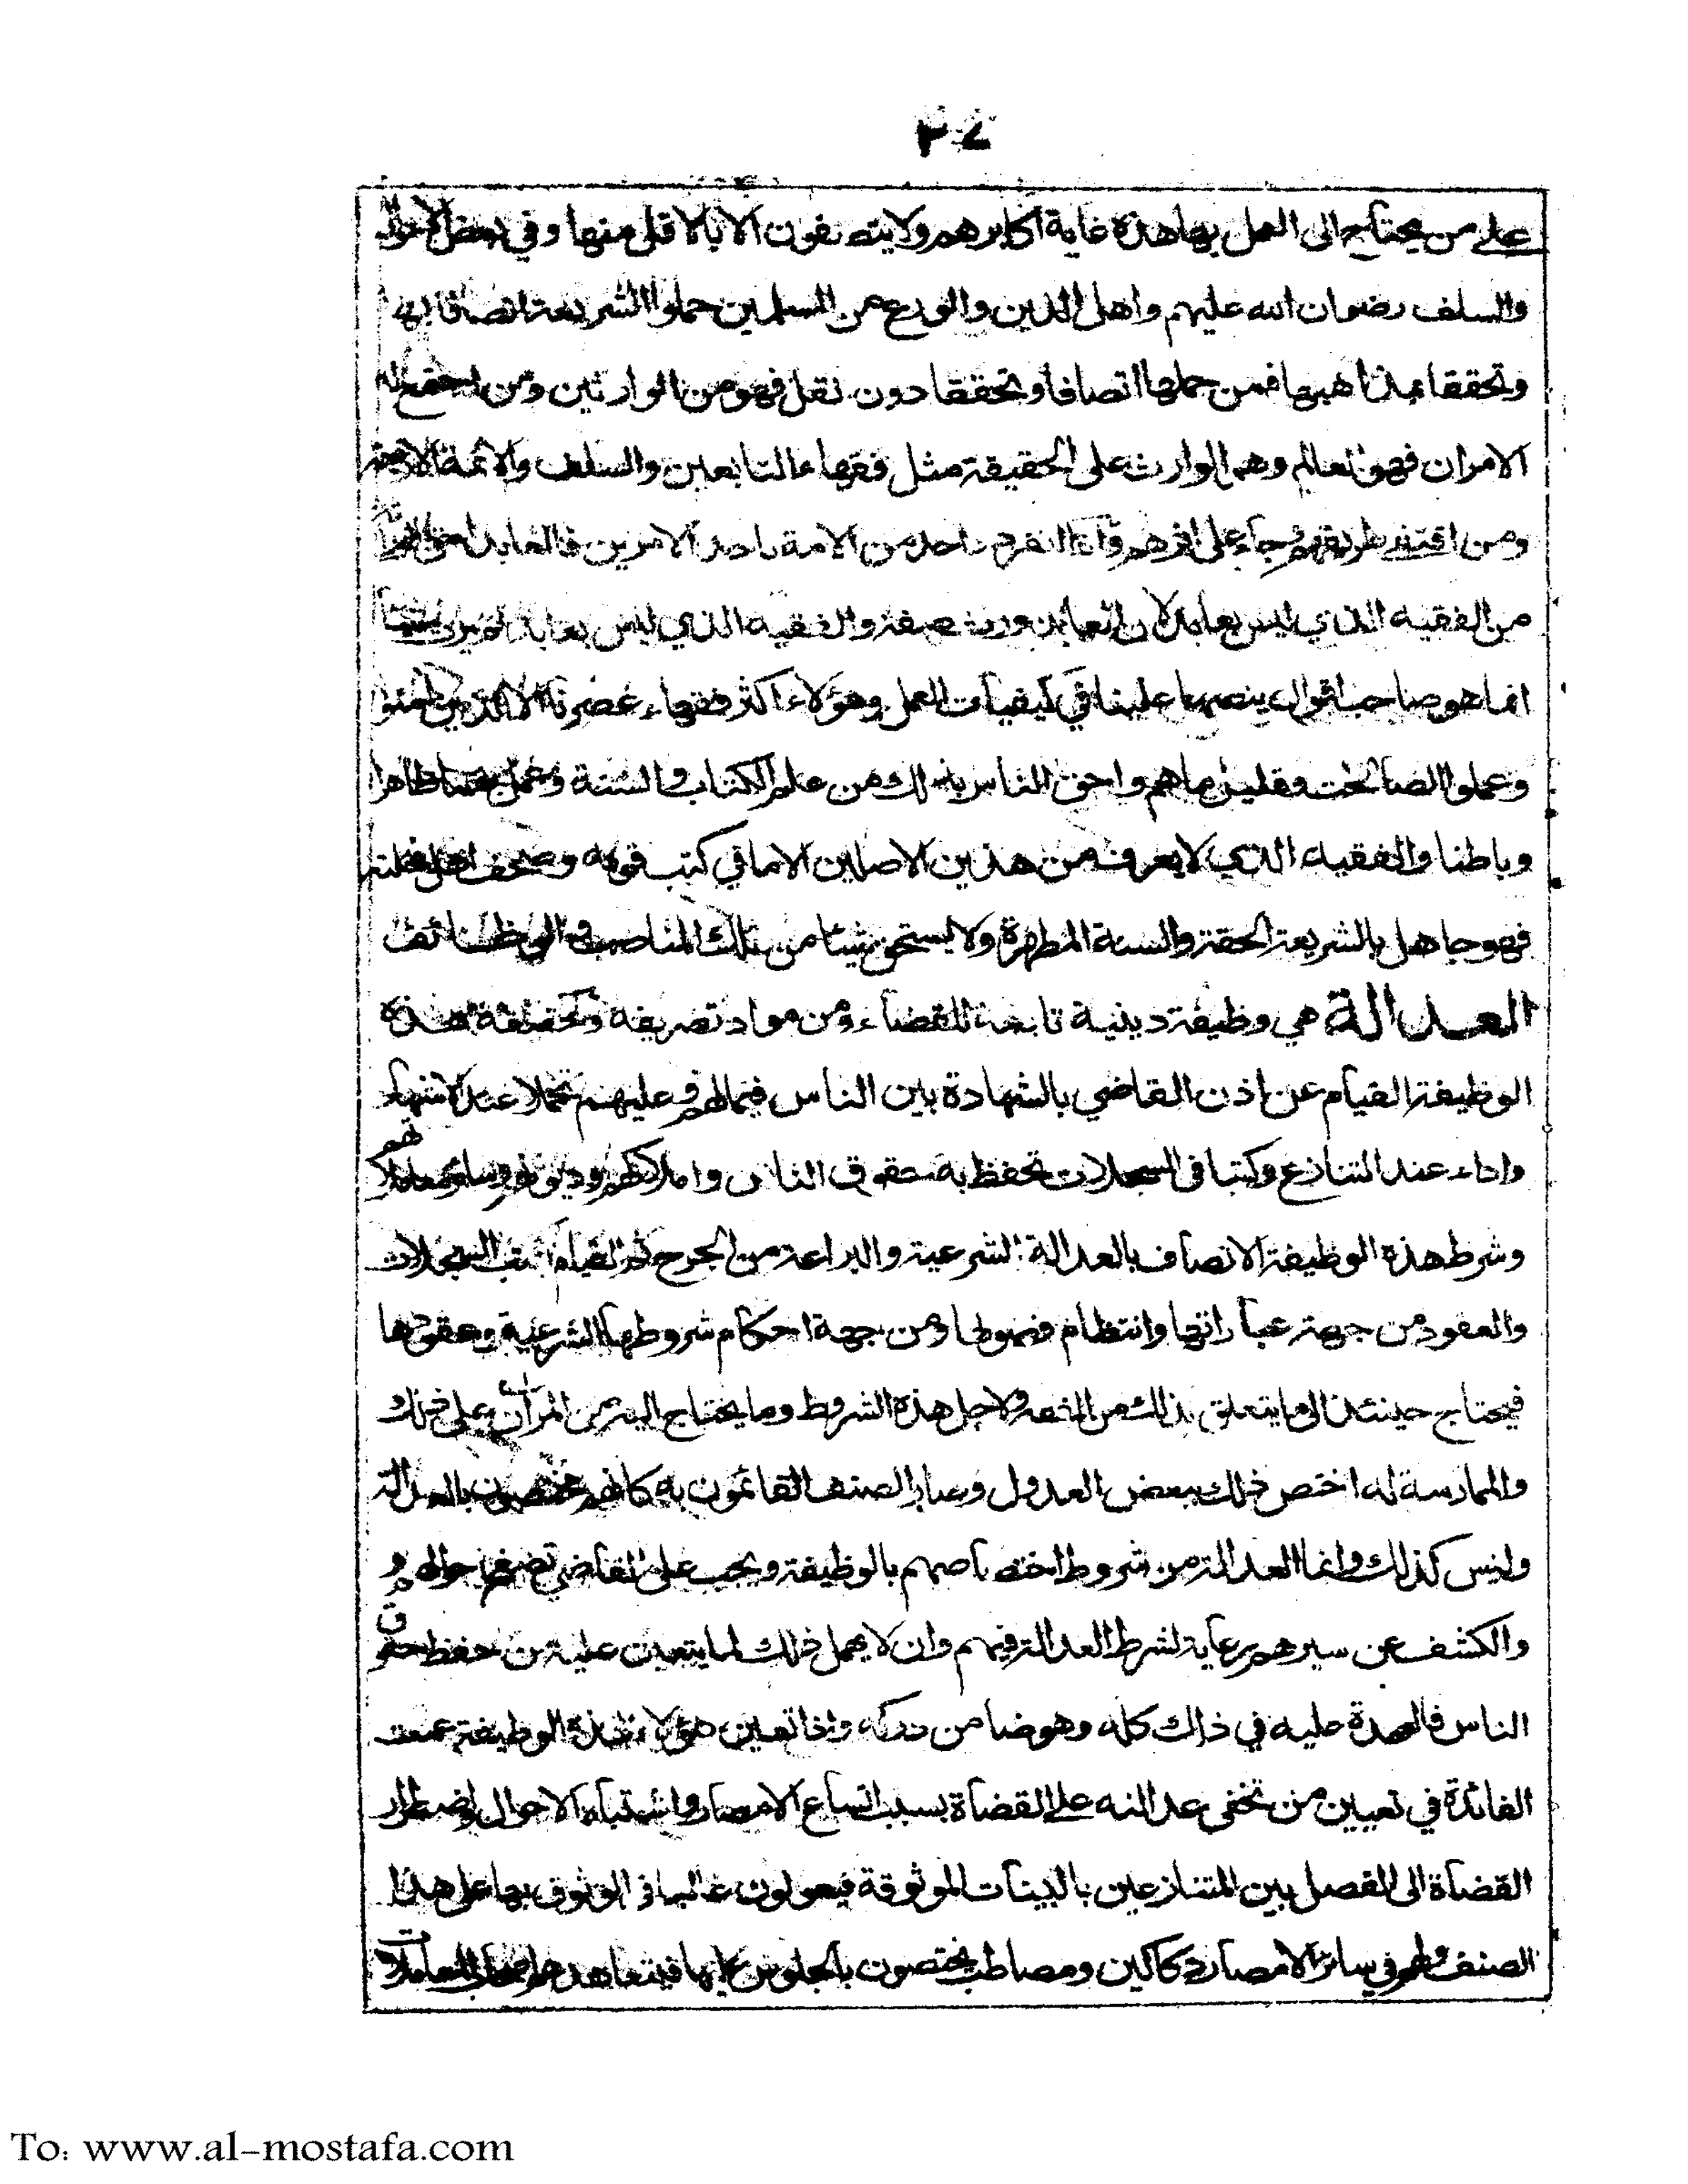 ٣٤
على من يحتاج الى العمل بها هذه غاية اكابرهم ولا يتصفون الا بالاقل منها وفي بعض الاحوال
والسلف رضوان الله عليهم واهل الدين والورع من المسلمين حملوا الشريعة اتصافا بها
وتحققا بمذاهبها فمن حملها اتصافا وتحققا دون نقل فهو من الوارثين ومن اجتمع له
الامران فهو العالم وهو الوارث على الحقيقة مثل فقهاء التابعين والسلف والائمة الاربعة
ومن اقتفى طريقهم وجاء على اثرهم واذا انفرد واحد من الامة باحد الامرين فالعابد احق بالوراثة
من الفقيه الذي ليس بعابد لان العابد ورث صفة والفقيه الذي ليس بعابد لم يرث شيئا
انما هو صاحب اقوال ينصها علينا في كيفيات العمل وهؤلاء اكثر فقهاء عصرنا الا الذين امنوا
وعملوا الصالحت وقليل ما هم واحق الناس بذلك من علم الكتاب والسنة وعمل بهما ظاهرا
وباطنا والفقيه الذي لا يعرف من هذين الاصلين الا ما في كتب قومه وصحف اهل نحلته
فهو جاهل بالشريعة الحقة والسنة المطهرة ولا يستحق شيئا من تلك المناصب والوظائف
العدالة هي وظيفة دينية تابعة للقضاء ومن مواد تصريفه وحقيقة هذه
الوظيفة القيام عن اذن القاضي بالشهادة بين الناس فيما لهم وعليهم تحملا عند الاشهاد
واداء عند التنازع وكتبا في السجلات تحفظ به حقوق الناس واملاكهم وديونهم وسائر معاملاتهم
وشرط هذه الوظيفة الاتصاف بالعدالة الشرعية والبراءة من الجرح ثم القيام بكتب السجلات
والعقود من جهة عباراتها وانتظام فصولها ومن جهة احكام شروطها الشرعية وعقودها
فيحتاج حينئذ الى ما يتعلق بذلك من الفقه ولاجل هذه الشروط وما يحتاج اليه من المران على ذلك
والممارسة له اختص ذلك ببعض العدول وصار الصنف القائمون به كانهم مختصون بالعدالة
وليس كذلك وانما العدالة من شروط اختصاصهم بالوظيفة ويجب على القاضي تصفح احوالهم و
والكشف عن سيرهم رعاية لشرط العدالة فيهم وان لا يهمل ذلك لما يتعين عليه من حفظ حقوق
الناس فالعهدة عليه في ذلك كله وهو ضامن دركه واذا تعين هؤلاء لهذه الوظيفة عمت
الفائدة في تعيين من تخفى عدالته على القضاة بسبب اتساع الامصار واشتباه الاحوال واضطرار
القضاة الى الفصل بين المتنازعين بالبينات الموثوقة فيعولون غالبا في الوثوق بها على هذا
الصنف ولهم في سائر الامصار دكاكين ومصاطب يختصون بالجلوس عليها فيتعاهدهم اصحاب المعاملات
To: www.al-mostafa.com